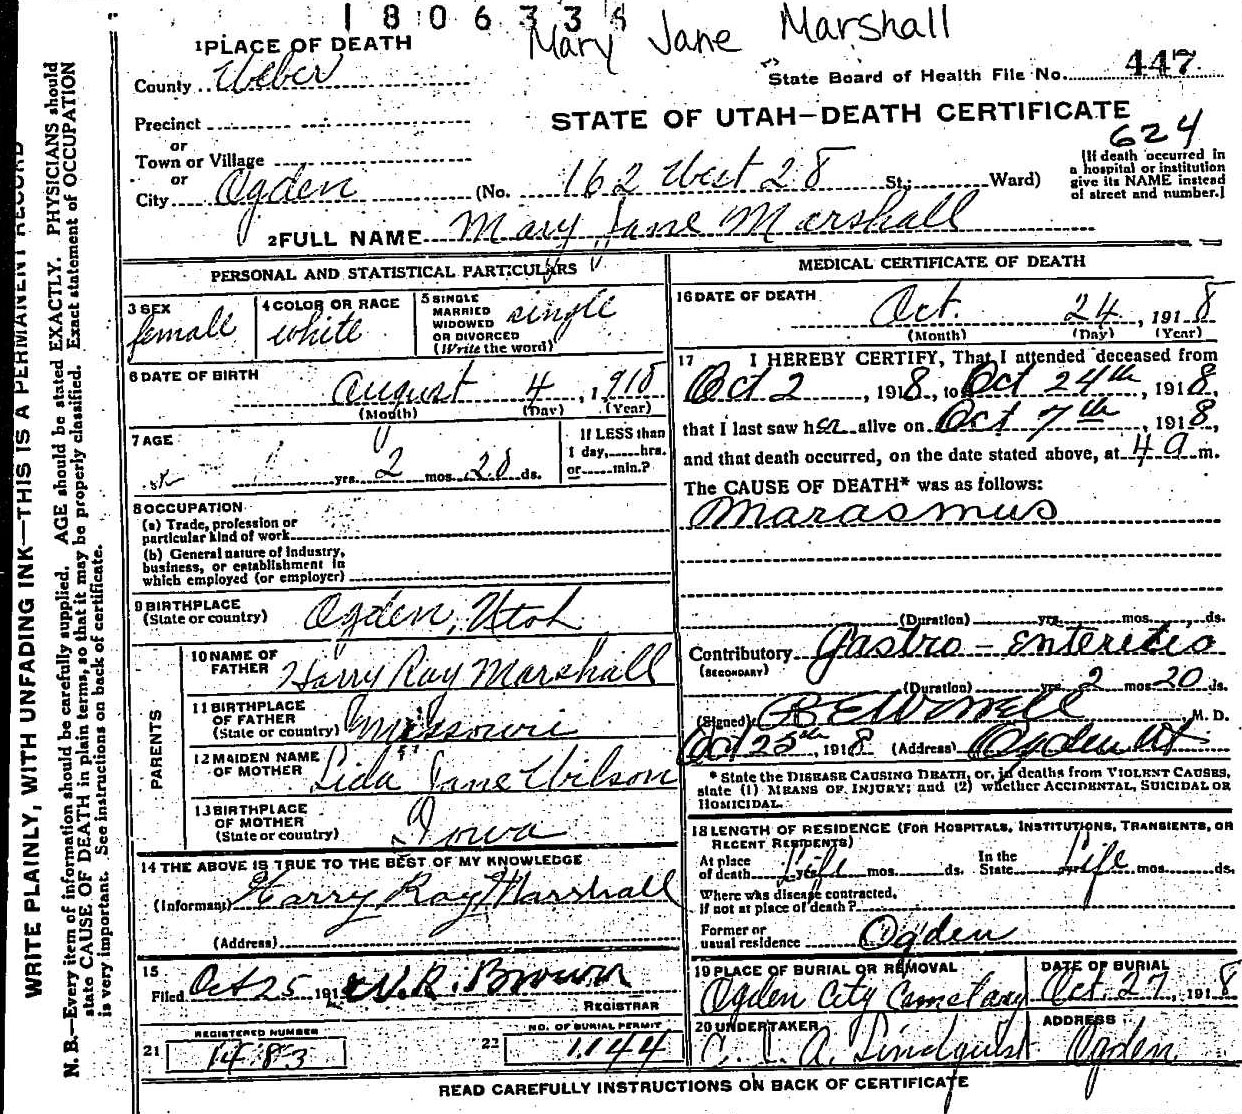 1806335
Mary Jane Marshall
1 PLACE OF DEATH
County Weber
State Board of Health File No. 447
Precinct
STATE OF UTAH—DEATH CERTIFICATE
624
or
Town or Village
or
City Ogden (No. 162 West 28 St; Ward)
[If death occurred in
a hospital or institution
give its NAME instead
of street and number.]
2 FULL NAME Mary Jane Marshall
PERSONAL AND STATISTICAL PARTICULARS
3 SEX female
4 COLOR OR RACE white
5 SINGLE
MARRIED
WIDOWED
OR DIVORCED
(Write the word) single
6 DATE OF BIRTH
August 4, 1918
(Month) (Day) (Year)
7 AGE
yrs. 2 mos. 20 ds.
If LESS than
1 day, hrs.
or min.?
8 OCCUPATION
(a) Trade, profession or
particular kind of work
(b) General nature of industry,
business, or establishment in
which employed (or employer)
9 BIRTHPLACE
(State or country) Ogden, Utah
PARENTS
10 NAME OF
FATHER Harry Ray Marshall
11 BIRTHPLACE
OF FATHER
(State or country) Missouri
12 MAIDEN NAME
OF MOTHER Lida Jane Wilson
13 BIRTHPLACE
OF MOTHER
(State or country) Iowa
14 THE ABOVE IS TRUE TO THE BEST OF MY KNOWLEDGE
(Informant) Harry Ray Marshall
(Address)
15
Filed Oct 25, 191 W.R. Brown
REGISTRAR
REGISTERED NUMBER
21 1483
NO. OF BURIAL PERMIT
22 1144
MEDICAL CERTIFICATE OF DEATH
16 DATE OF DEATH
Oct. 24, 1918
(Month) (Day) (Year)
17 I HEREBY CERTIFY, That I attended deceased from
Oct 2, 1918, to Oct 24th, 1918,
that I last saw her alive on Oct 7th, 1918,
and that death occurred, on the date stated above, at 4 a m.
The CAUSE OF DEATH* was as follows:
Marasmus
(Duration) yrs. mos. ds.
Contributory Gastro-Enteritis
(SECONDARY)
(Duration) yrs. 2 mos. 20 ds.
(Signed) M. D.
Oct 25th, 1918 (Address) Ogden Ut
* State the DISEASE CAUSING DEATH, or, in deaths from VIOLENT CAUSES,
state (1) MEANS OF INJURY; and (2) whether ACCIDENTAL, SUICIDAL OR
HOMICIDAL.
18 LENGTH OF RESIDENCE (FOR HOSPITALS, INSTITUTIONS, TRANSIENTS, OR
RECENT RESIDENTS)
At place
of death Life yrs. mos. ds. In the
State Life mos. ds.
Where was disease contracted,
if not at place of death?
Former or
usual residence Ogden
19 PLACE OF BURIAL OR REMOVAL
Ogden City Cemetary
DATE OF BURIAL
Oct. 27, 1918
20 UNDERTAKER
C. L. A. Lindquist
ADDRESS
Ogden
READ CAREFULLY INSTRUCTIONS ON BACK OF CERTIFICATE
WRITE PLAINLY, WITH UNFADING INK—THIS IS A PERMANENT RECORD
N. B.—Every item of information should be carefully supplied. AGE should be stated EXACTLY. PHYSICIANS should
state CAUSE OF DEATH in plain terms, so that it may be properly classified. Exact statement of OCCUPATION
is very important. See instructions on back of certificate.